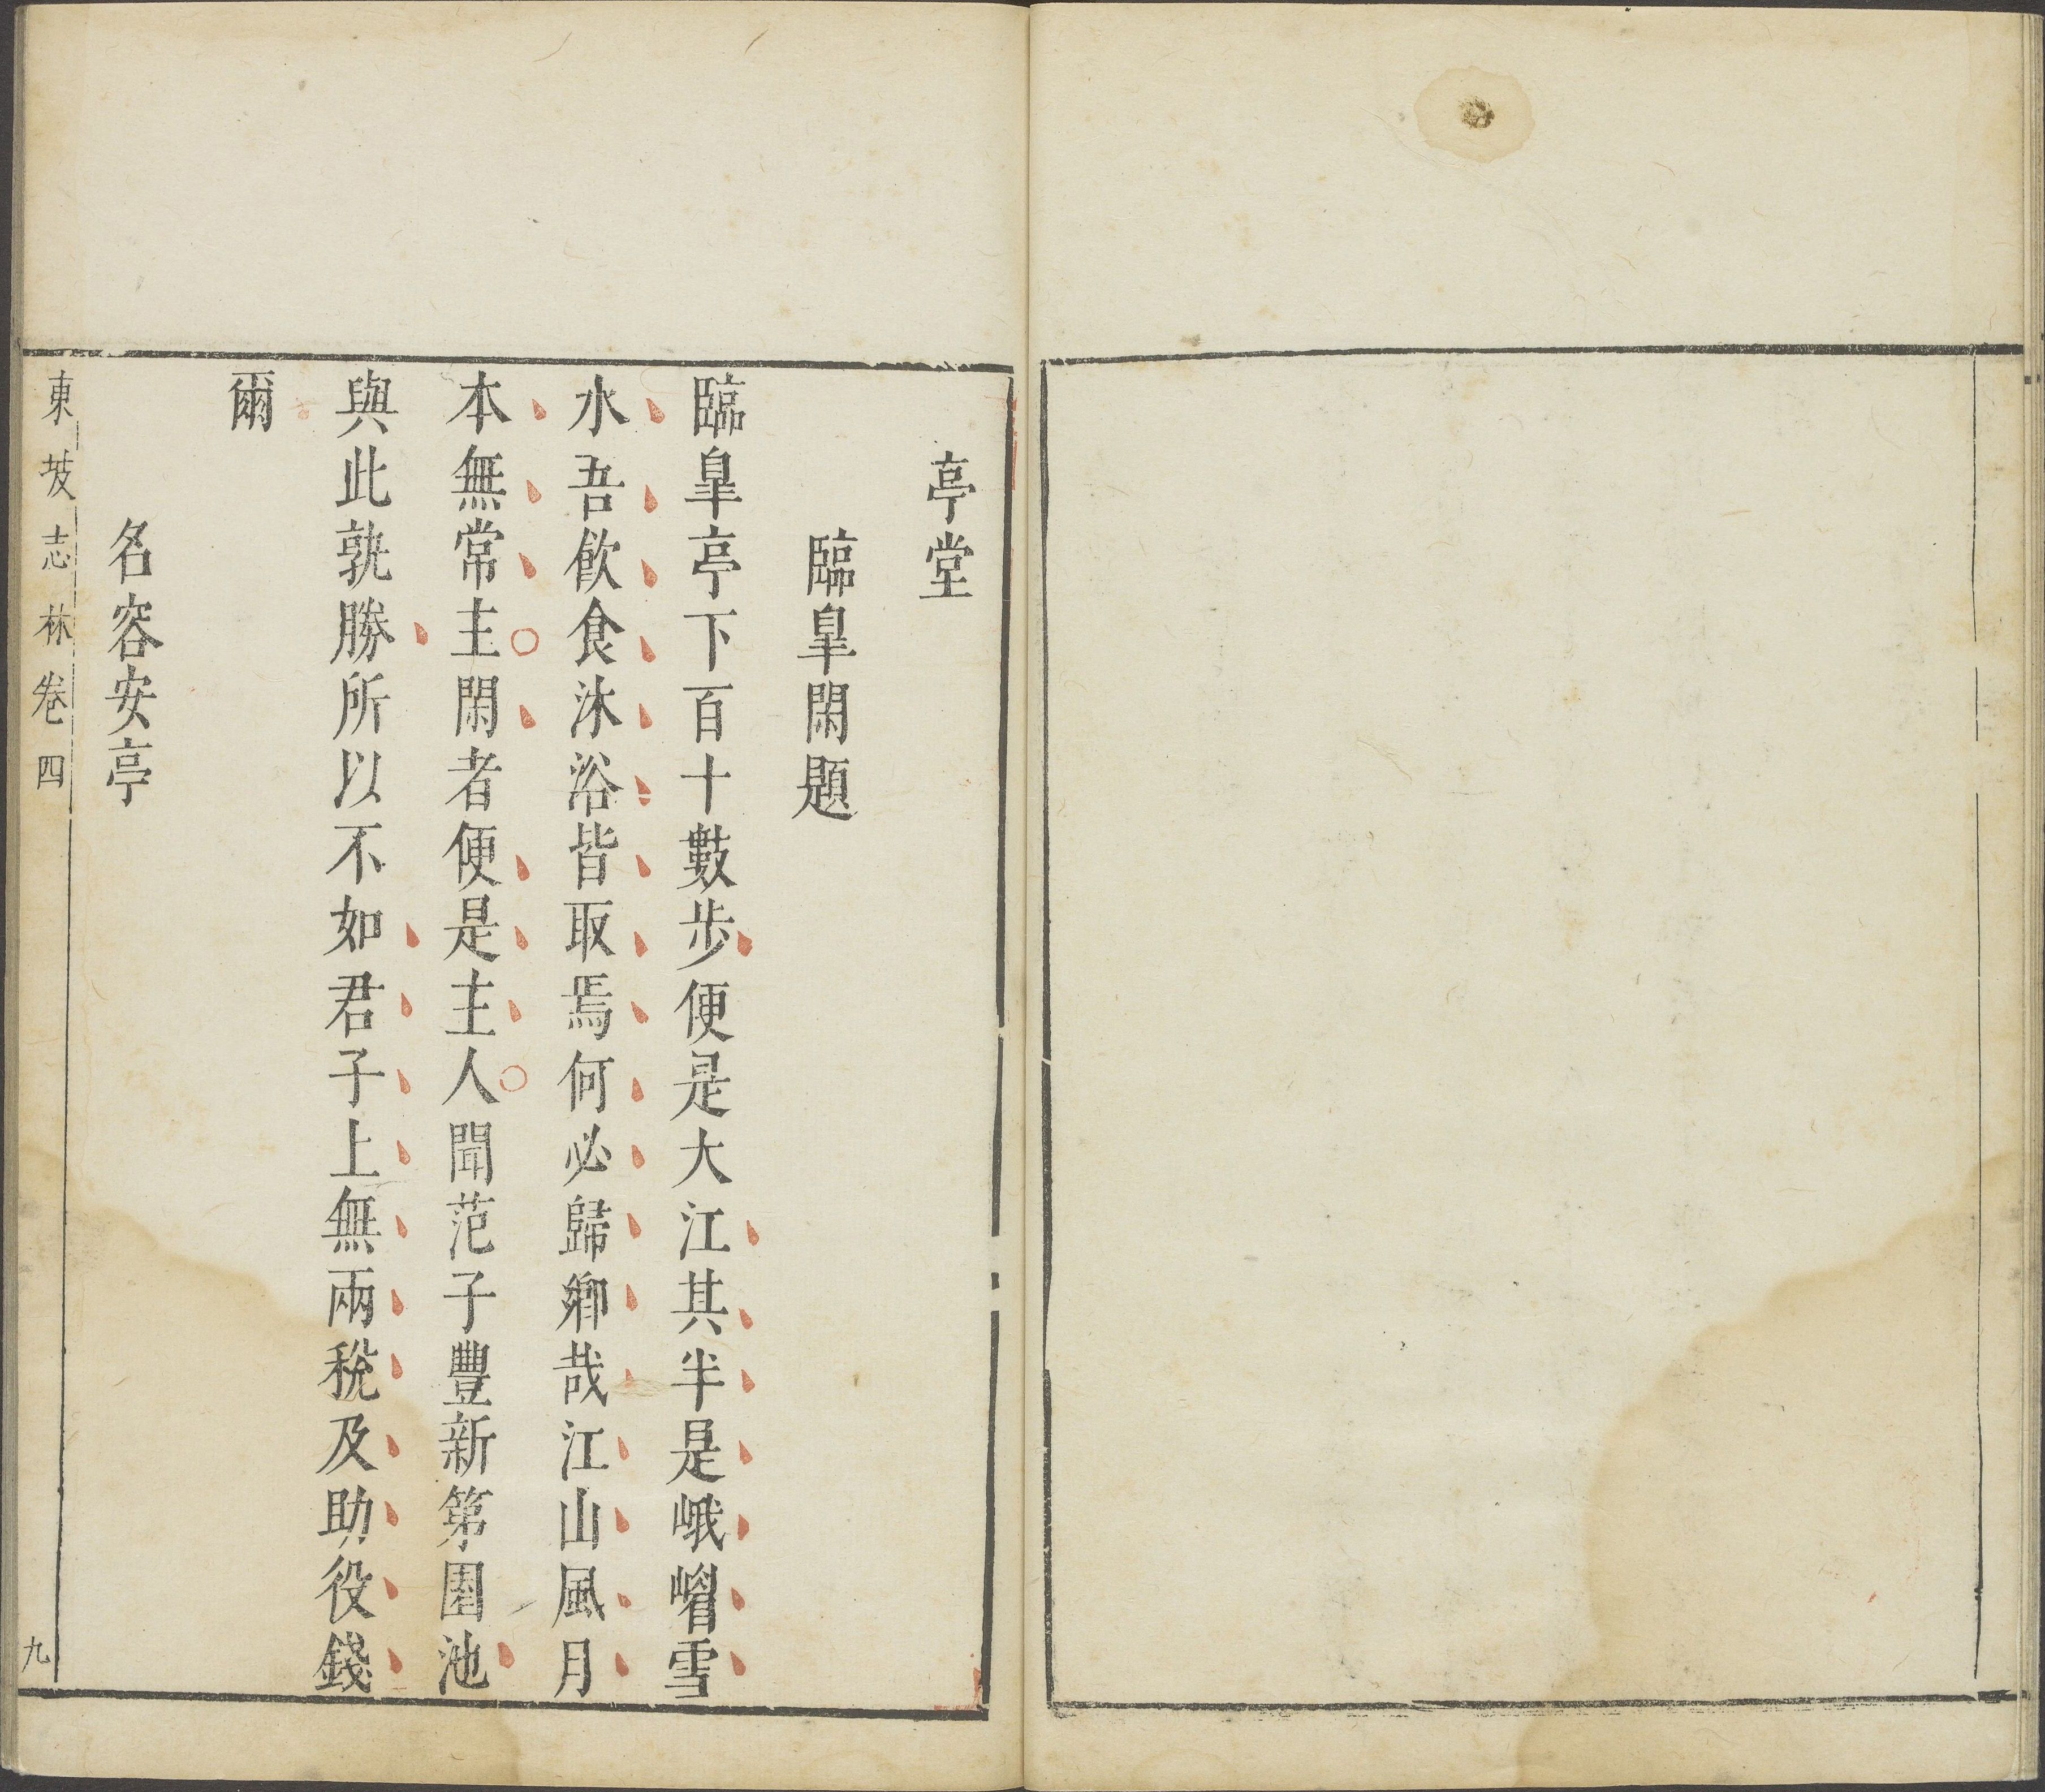 亭堂
臨臯閑題
臨臯亭下百十數步便是大江其半是峨嵋雪
水吾飲食沐浴皆取焉何必歸鄉哉江山風月
本無常主閑者便是主人聞范子豐新第園池
與此孰勝所以不如君子上無兩稅及助役錢
爾
名容安亭
東坡志林卷四
九